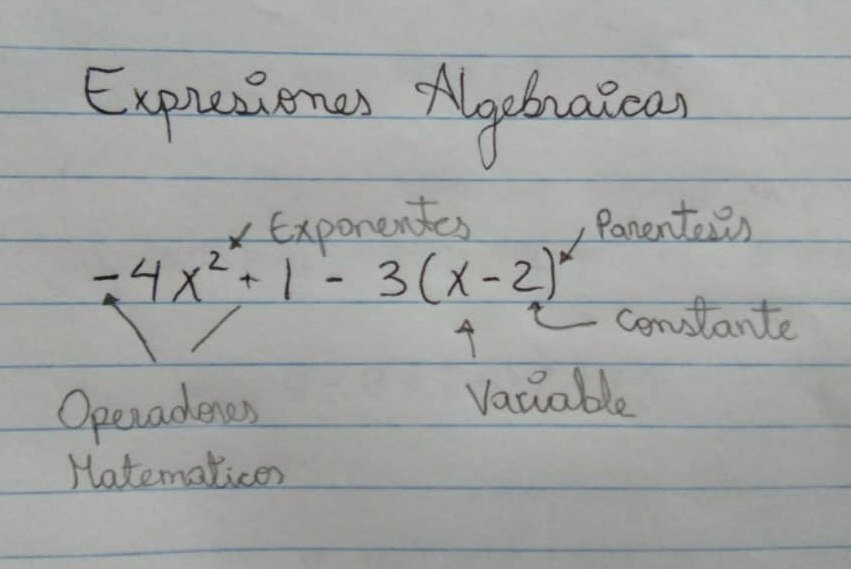 Expresiones Algebraicas
Exponentes Parentesis
-4x² + 1 - 3(x-2)
constante
Variable
Operadores
Matematicos